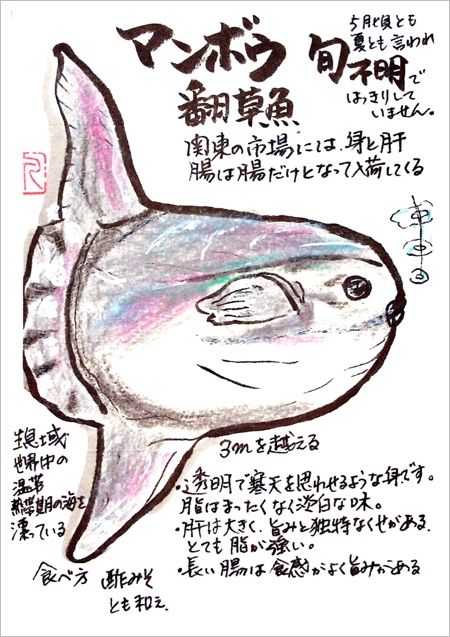 マンボウ
翻草魚
旬不明で
5月頃とも
夏とも言われ
はっきりして
いません。
関東の市場には、身と肝
腸は腸だけとなって入荷してくる
3mを越える
・透明で寒天を思わせるような身です。
脂はまったくなく淡白な味。
・肝は大きく、旨みと独特なくせがある。
とても脂が強い。
・長い腸は食感がよく旨みがある
生息域
世界中の
温帯
熱帯期の海を
漂っている
食べ方 酢みそ
とも和え